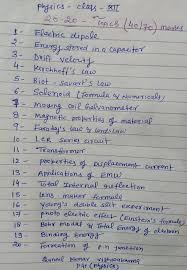 Physics - class - XII
20-20 - Track (40/70) marks
1 - Electric dipole
2 - Energy stored in a capacitor
3 - Drift velocity
4 - Kirchhoff's law
5 - Biot-Savart's law
6 - Solenoid (Formula & numericals)
7 - Moving Coil Galvanometer
8 - Magnetic properties of material
9 - Faraday's law & Lenz's law
10 - LCR series circuit
11 - Transformer
12 - properties of displacement current
13 - Applications of EMW
14 - Total internal reflection
15 - Lens maker formula
16 - Young's double slit experiment
17 - photo electric effect (Einstein's formula)
18 - Bohr model & Total Energy of electron
19 - Binding Energy
20 - Formation of P-N junction
Kumar Vishwakarma
PGT (Physics)